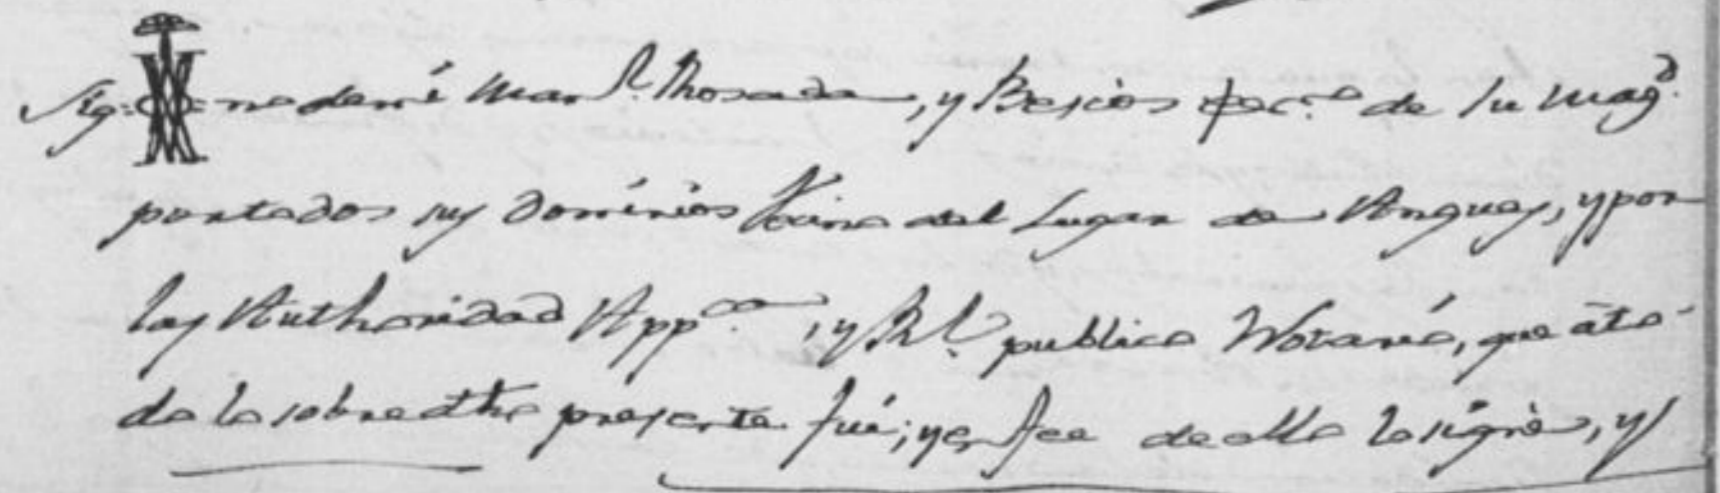 Sig-no de mi Man.l Rosada, y Bescos Escr.no de Su Mag.d
por todos sus Dominios Vecino del Lugar de Angues, y por
las Authoridad App.ca, y Rl. publico Notario, que âto-
do lo sobre dtho presente fui; y en fee de ello lo signè, y